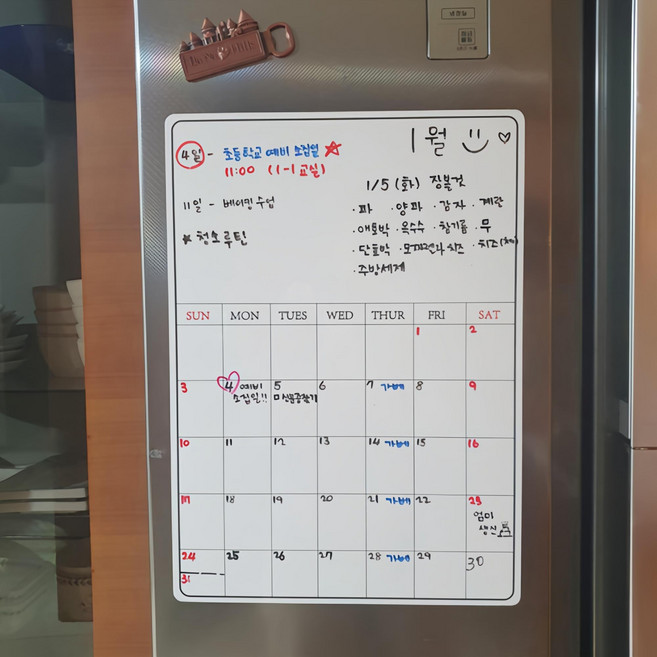 1월
4일 - 초등학교 예비 소집일
11:00 (1-1 교실)
11일 - 베이킹 수업
청소루틴
1/5 (화) 장볼것
· 파 · 양파 · 감자 · 계란
· 애호박 · 옥수수 · 참기름 · 무
· 단호박 · 모짜렐라 치즈 · 치즈
· 주방세제
SUN MON TUES WED THUR FRI SAT
1 2
3 4 예비 5 6 7 가베 8 9
소집일!!
10 11 12 13 14 가베 15 16
17 18 19 20 21 가베 22 23
엄마
생신
24 25 26 27 28 가베 29 30
31